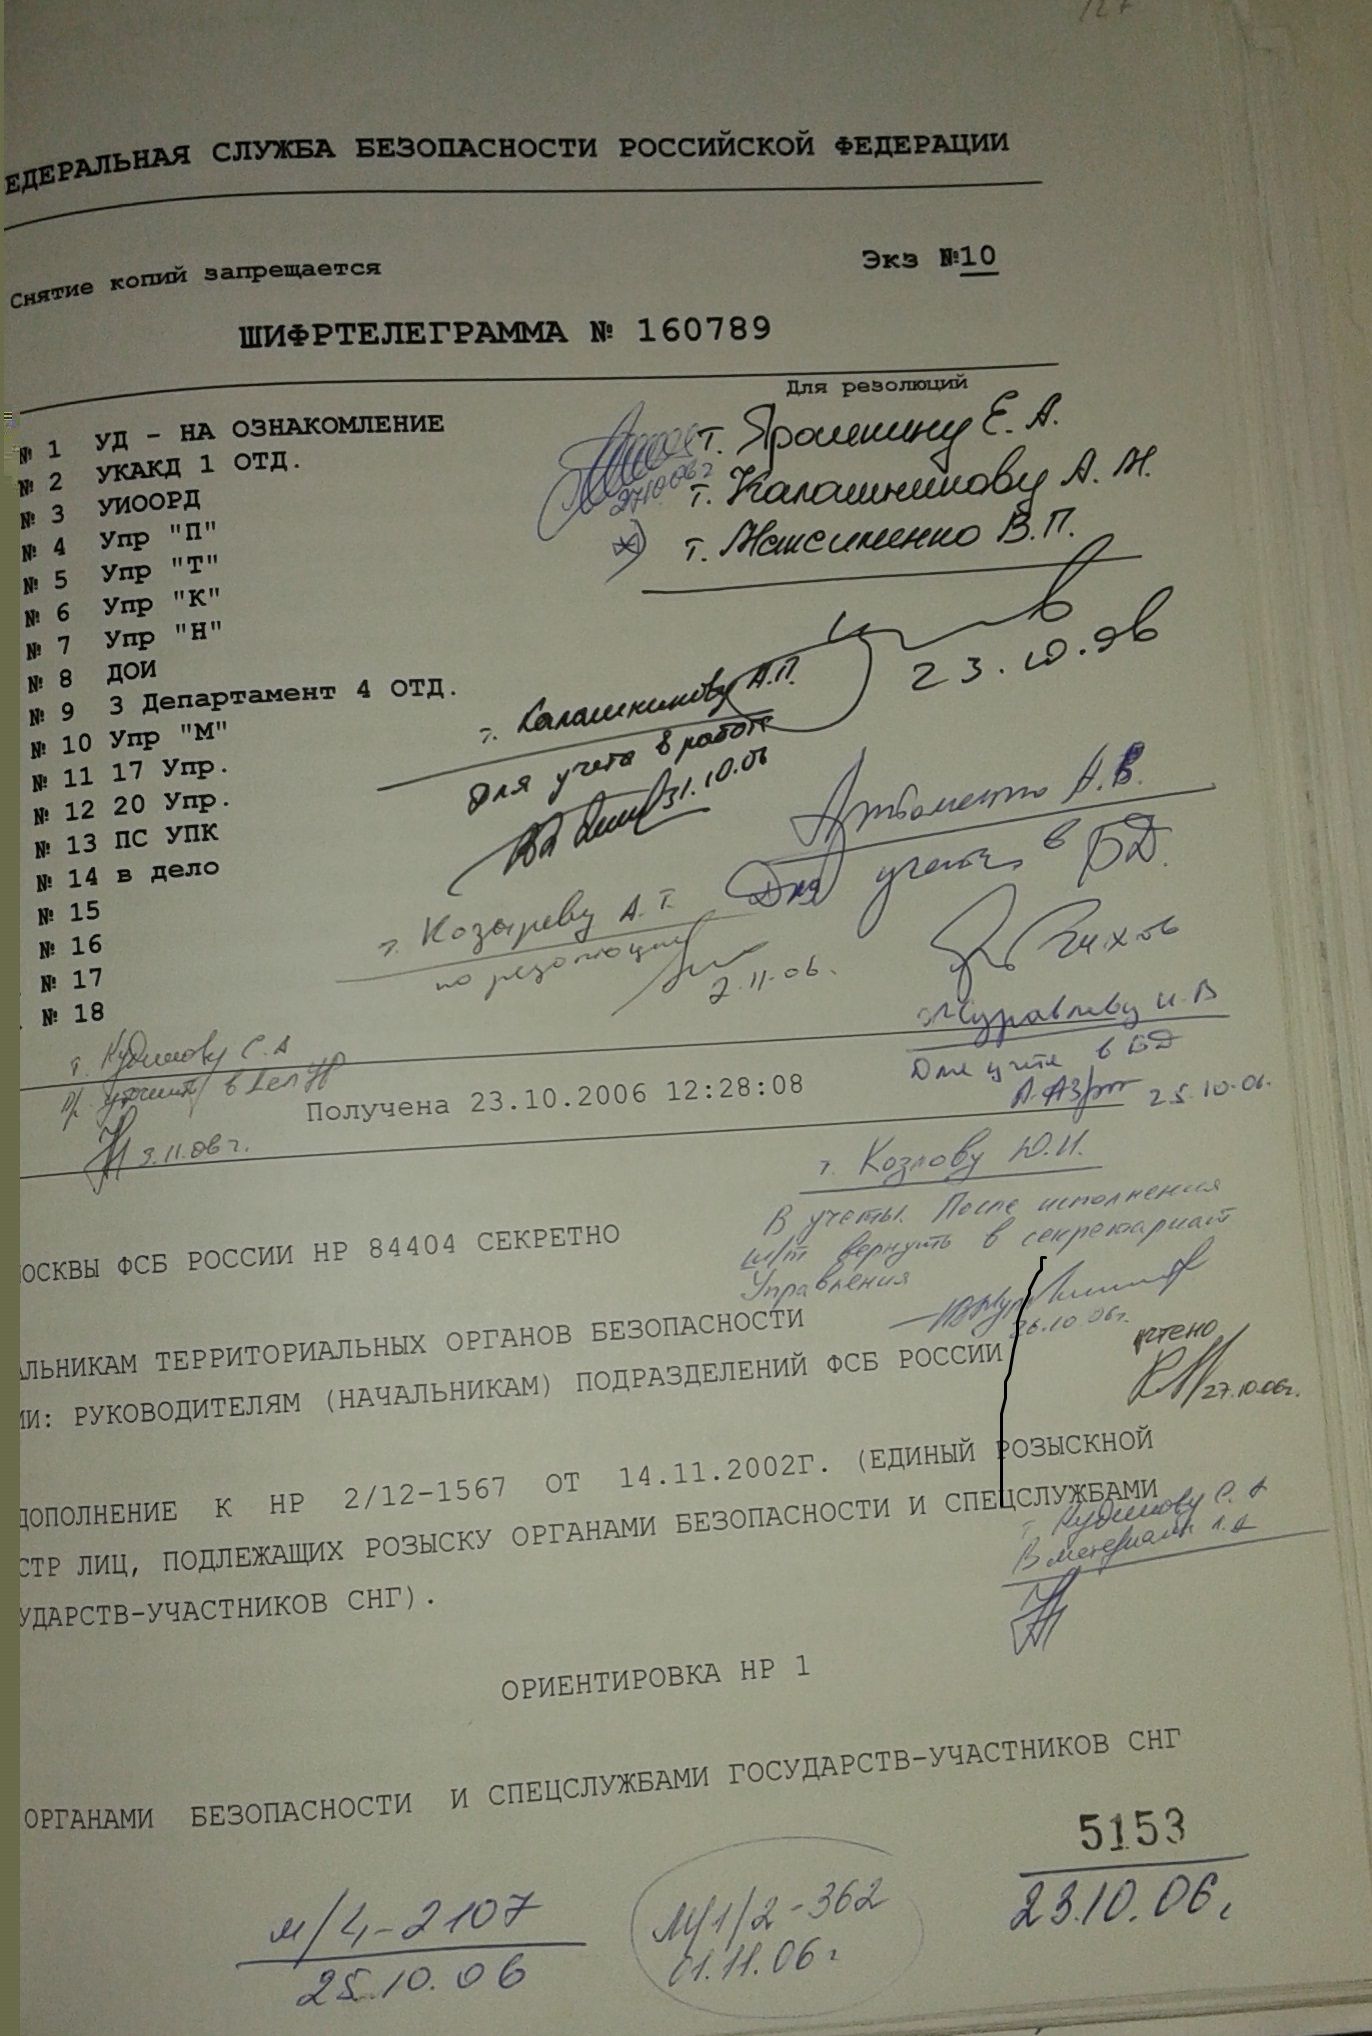 ЕДЕРАЛЬНАЯ СЛУЖБА БЕЗОПАСНОСТИ РОССИЙСКОЙ ФЕДЕРАЦИИ
Снятие копий запрещается
Экз №10
ШИФРТЕЛЕГРАММА № 160789
Для резолюций
№ 1 УД - НА ОЗНАКОМЛЕНИЕ
№ 2 УКАКД 1 ОТД.
№ 3 УИООРД
№ 4 Упр "П"
№ 5 Упр "Т"
№ 6 Упр "К"
№ 7 Упр "Н"
№ 8 ДОИ
№ 9 3 Департамент 4 ОТД.
№ 10 Упр "М"
№ 11 17 Упр.
№ 12 20 Упр.
№ 13 ПС УПК
№ 14 в дело
№ 15
№ 16
№ 17
№ 18
т. Ярошину Е. А.
т. Калашникову А.
т. Максименко В.П.
23.10.06
т. Калашникову А.П.
Для учета в работе
31.10.06
А.В.
Для учета в БД.
т. Козыреву А. Т.
по резолюции
2.11.06.
Журавлеву И. В
Для учета в БД
25.10.06.
т. Кудимову С. А
в дел
3.11.06г.
Получена 23.10.2006 12:28:08
т. Козлову Ю.И.
В учеты. После исполнения
ш/т вернуть в секретариат
Управления
26.10.06г.
учтено
27.10.06г.
ОСКВЫ ФСБ РОССИИ НР 84404 СЕКРЕТНО
АЛЬНИКАМ ТЕРРИТОРИАЛЬНЫХ ОРГАНОВ БЕЗОПАСНОСТИ
ИИ: РУКОВОДИТЕЛЯМ (НАЧАЛЬНИКАМ) ПОДРАЗДЕЛЕНИЙ ФСБ РОССИИ
ДОПОЛНЕНИЕ К НР 2/12-1567 ОТ 14.11.2002Г. (ЕДИНЫЙ РОЗЫСКНОЙ
СТР ЛИЦ, ПОДЛЕЖАЩИХ РОЗЫСКУ ОРГАНАМИ БЕЗОПАСНОСТИ И СПЕЦСЛУЖБАМИ
УДАРСТВ-УЧАСТНИКОВ СНГ).
т. Кудимову С. А
В материалы
ОРИЕНТИРОВКА НР 1
ОРГАНАМИ БЕЗОПАСНОСТИ И СПЕЦСЛУЖБАМИ ГОСУДАРСТВ-УЧАСТНИКОВ СНГ
5153
23.10.06г
м/4-2107
25.10.06
М/1/2-362
01.11.06г